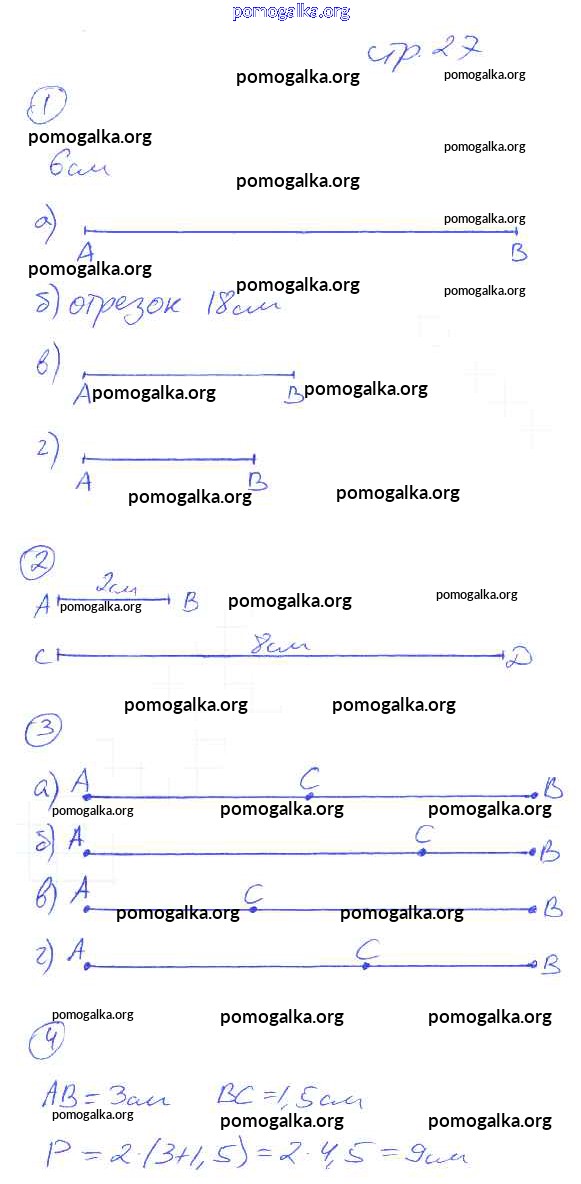 pomogalka.org
стр. 27
pomogalka.org pomogalka.org
1
pomogalka.org pomogalka.org
6см
pomogalka.org
а) pomogalka.org
A B
pomogalka.org pomogalka.org pomogalka.org
б) отрезок 18см
в)
A pomogalka.org B pomogalka.org
г)
A B
pomogalka.org pomogalka.org
2
2см
A pomogalka.org B pomogalka.org pomogalka.org
8см
C D
pomogalka.org pomogalka.org
3
а) A C B
pomogalka.org pomogalka.org pomogalka.org
б) A C B
в) A C B
pomogalka.org pomogalka.org
г) A C B
pomogalka.org pomogalka.org pomogalka.org
4
AB = 3см BC = 1,5см
pomogalka.org pomogalka.org pomogalka.org
P = 2·(3+1,5) = 2·4,5 = 9см